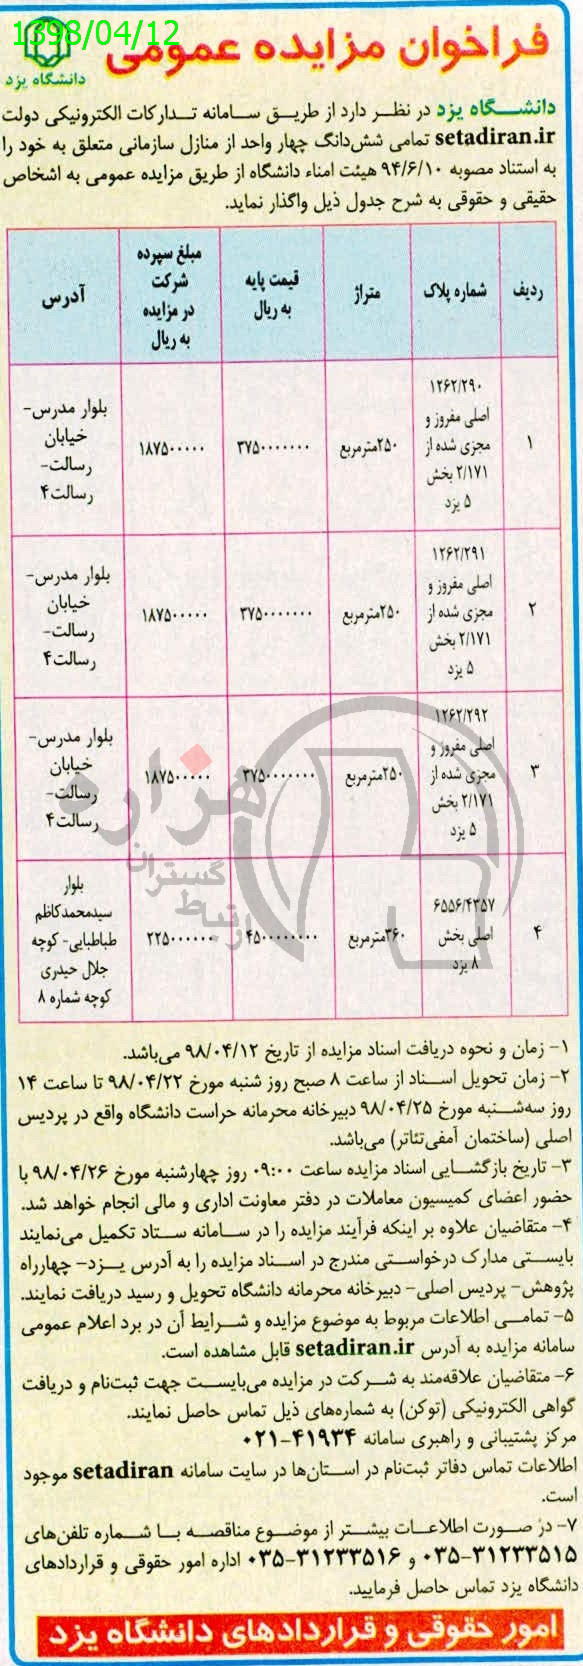 1398/04/12
فراخوان مزایده عمومی
دانشگاه یزد
دانشگاه یزد در نظر دارد از طریق سامانه تدارکات الکترونیکی دولت
setadiran.ir تمامی شش‌دانگ چهار واحد از منازل سازمانی متعلق به خود را
به استناد مصوبه ۹۴/۶/۱۰ هیئت امناء دانشگاه از طریق مزایده عمومی به اشخاص
حقیقی و حقوقی به شرح جدول ذیل واگذار نماید.
ردیف | شماره پلاک | متراژ | قیمت پایه به ریال | مبلغ سپرده شرکت در مزایده به ریال | آدرس
۱ | ۱۲۶۲/۲۹۰ اصلی مفروز و مجزی شده از ۲/۱۷۱ بخش ۵ یزد | ۲۵۰مترمربع | ۳۷۵۰۰۰۰۰۰۰ | ۱۸۷۵۰۰۰۰۰ | بلوار مدرس- خیابان رسالت- رسالت۴
۲ | ۱۲۶۲/۲۹۱ اصلی مفروز و مجزی شده از ۲/۱۷۱ بخش ۵ یزد | ۲۵۰مترمربع | ۳۷۵۰۰۰۰۰۰۰ | ۱۸۷۵۰۰۰۰۰ | بلوار مدرس- خیابان رسالت- رسالت۴
۳ | ۱۲۶۲/۲۹۲ اصلی مفروز و مجزی شده از ۲/۱۷۱ بخش ۵ یزد | ۲۵۰مترمربع | ۳۷۵۰۰۰۰۰۰۰ | ۱۸۷۵۰۰۰۰۰ | بلوار مدرس- خیابان رسالت- رسالت۴
۴ | ۶۵۵۶/۴۳۵۷ اصلی بخش ۸ یزد | ۳۶۰مترمربع | ۴۵۰۰۰۰۰۰۰۰ | ۲۲۵۰۰۰۰۰۰ | بلوار سیدمحمدکاظم طباطبایی- کوچه جلال حیدری کوچه شماره ۸
هزاره
گستران
ارتباط
۱- زمان و نحوه دریافت اسناد مزایده از تاریخ ۹۸/۰۴/۱۲ می‌باشد.
۲- زمان تحویل اسناد از ساعت ۸ صبح روز شنبه مورخ ۹۸/۰۴/۲۲ تا ساعت ۱۴
روز سه‌شنبه مورخ ۹۸/۰۴/۲۵ دبیرخانه محرمانه حراست دانشگاه واقع در پردیس
اصلی (ساختمان آمفی‌تئاتر) می‌باشد.
۳- تاریخ بازگشایی اسناد مزایده ساعت ۰۹:۰۰ روز چهارشنبه مورخ ۹۸/۰۴/۲۶ با
حضور اعضای کمیسیون معاملات در دفتر معاونت اداری و مالی انجام خواهد شد.
۴- متقاضیان علاوه بر اینکه فرآیند مزایده را در سامانه ستاد تکمیل می‌نمایند
بایستی مدارک درخواستی مندرج در اسناد مزایده را به آدرس یزد- چهارراه
پژوهش- پردیس اصلی- دبیرخانه محرمانه دانشگاه تحویل و رسید دریافت نمایند.
۵- تمامی اطلاعات مربوط به موضوع مزایده و شرایط آن در برد اعلام عمومی
سامانه مزایده به آدرس setadiran.ir قابل مشاهده است.
۶- متقاضیان علاقه‌مند به شرکت در مزایده می‌بایست جهت ثبت‌نام و دریافت
گواهی الکترونیکی (توکن) به شماره‌های ذیل تماس حاصل نمایند.
مرکز پشتیبانی و راهبری سامانه ۴۱۹۳۴-۰۲۱
اطلاعات تماس دفاتر ثبت‌نام در استان‌ها در سایت سامانه setadiran موجود
است.
۷- در صورت اطلاعات بیشتر از موضوع مناقصه با شماره تلفن‌های
۳۱۲۳۳۵۱۵-۰۳۵ و ۳۱۲۳۳۵۱۶-۰۳۵ اداره امور حقوقی و قراردادهای
دانشگاه یزد تماس حاصل فرمایید.
امور حقوقی و قراردادهای دانشگاه یزد